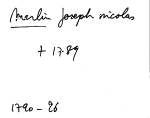 Merlin Joseph nicolas
+ 1789
1790 - 96